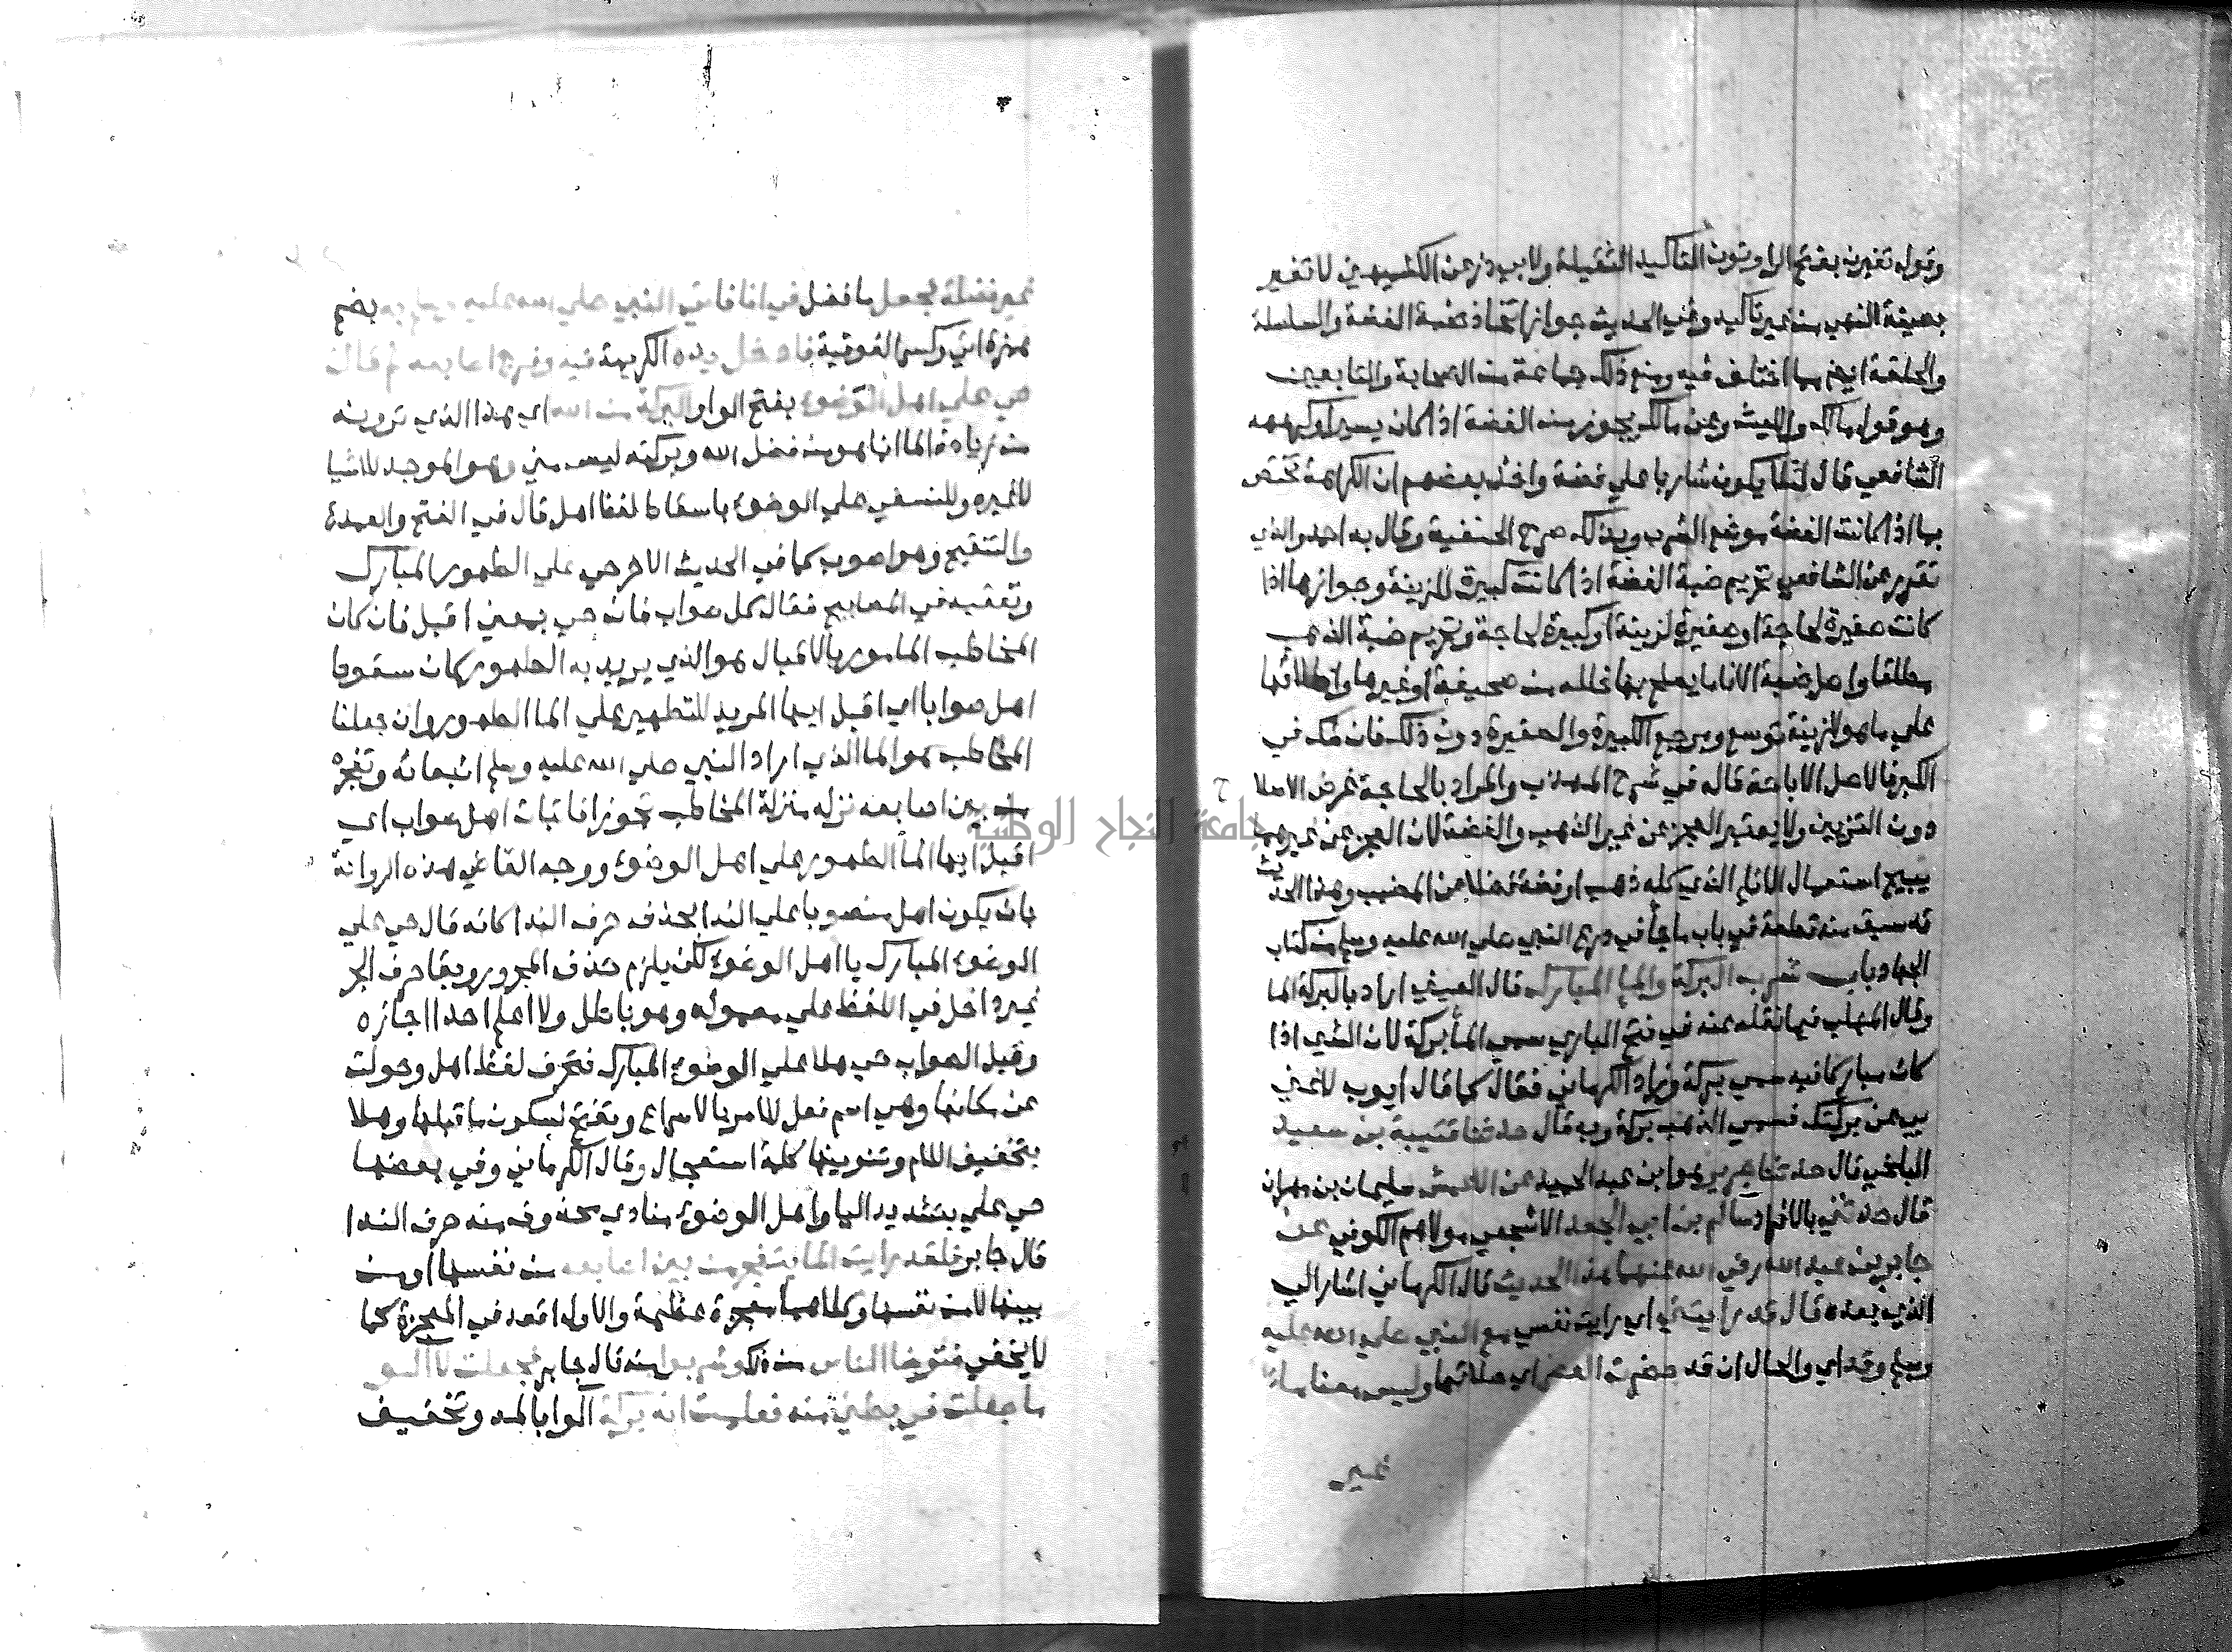 وقوله تغيرن بفتح الرا ونون التاكيد الثقيلة ولابي ذر عن الكشميهني لا تغير
بصيغة النهي من غير تاكيد وفي الحديث جواز اتخاذ ضبة الفضة والسلسلة
والحلقة ايضا مما اختلف فيه ومنع ذلك جماعة من الصحابة والتابعين
وهو قول مالك والليث وعن مالك يجوز من الفضة اذا كان يسيرا وكرهه
الشافعي قال لئلا يكون شاربا علي فضة واخذ بعضهم ان الكراهة تختص
بها اذا كانت الفضة موضع الشرب وبذلك صرح الحنفية وقال به احمد والذي
تقرر عن الشافعي تحريم ضبة الفضة اذا كانت كبيرة للزينة وجوازها اذا
كانت صغيرة لحاجة او صغيرة لزينة او كبيرة لحاجة وتحريم ضبة الذهب
مطلقا واصل ضبة الانا ما يصلح بها خلله من صحيفة او غيرها واطلاقها
علي ما هو لازينة توسع ومرجع الكبيرة والصغيرة دون ذلك فان شك في
الكبر فالاصل الاباحة قاله في شرح المهذب والمراد بالحاجة غرض الاصلاح
دون التزيين ولا يعتبر العجز عن غير الذهب والفضة لان العجز عن غيرهما
يبيح استعمال الانا الذي كله ذهب او فضة فضلا عن المضبب وهذا الحديث
قد سبق منه قطعة في باب ما جا في درع النبي صلي الله عليه وسلم من كتاب
الجهاد باب شرب البركة والما المبارك قال العيني اراد بالبركة الما
وقال المهلب فيما نقله عنه في فتح الباري سمي الما بركة لان الشي اذا
كان مباركا فيه سمي بركة وزاد الكرماني فقال كما قال ايوب لاغني
بي عن بركتك فسمي الذهب بركة وبه قال حدثنا قتيبة بن سعيد
البلخي قال حدثنا جرير هو ابن عبد الحميد عن الاعمش سليمان بن مهران
قال حدثني بالافراد سالم بن ابي الجعد الاشجعي مولاهم الكوفي عن
جابر بن عبد الله رضي الله عنهما هذا الحديث قال الكرماني اشار الي
الذي بعده قال قد رايتني اي رايت نفسي مع النبي صلي الله عليه
وسلم وقد اي والحال ان قد حضرت العصر اي صلاتها وليس معنا ما
غير
غير فضلة فجعل ما فضل في انا فاتي النبي صلي الله عليه وسلم به بضم
همزة اتي وكسر الفوقية فادخل يده الكريمة فيه وفرج اصابعه ثم قال
حي علي اهل الوضوء بفتح الواو البركة من الله اي هذا الذي ترونه
من زيادة الما انما هو من فضل الله وبركته ليس مني وهو الموجد للاشيا
لا غيره وللنسفي علي الوضوء باسقاط لفظ اهل قال في الفتح والعمدة
والتنقيح وهو اصوب كما في الحديث الاخر حي علي الطهور المبارك
وتعقبه في المصابيح فقال كل صواب فان حي بمعني اقبل فان كان
المخاطب المامور بالاقبال هو الذي يريد به الطهور كان سقوط
اهل صوابا اي اقبل ايها المريد للتطهير علي الما الطهور وان جعلنا
المخاطب هو الما الذي اراد النبي صلي الله عليه وسلم انبعاثه وتفجره
من بين اصابعه نزله منزلة المخاطب تجوزا فاثبات اهل صواب اي
اقبل ايها الما الطهور علي اهل الوضوء ووجه القاضي هذه الرواية
بان يكون اهل منصوبا علي الندا بحذف حرف الندا كانه قال حي علي
الوضوء المبارك يا اهل الوضوء لكن يلزم حذف المجرور وبقا حرف الجر
غير داخل في اللفظ علي معموله وهو باطل ولا اعلم احدا اجازه
وقيل الصواب حي هلا علي الوضوء المبارك فتحرف لفظ اهل وحولت
عن مكانها وهي اسم فعل للامر بالاسراع وتفتح لسكون ما قبلها وهلا
بتخفيف اللام وتنوينها كلمة استعجال وقال الكرماني وفي بعضها
حي علي بتشديد اليا واهل الوضوء منادي محذوف منه حرف الندا
قال جابر فلقد رايت الما يتفجر من بين اصابعه من نفسها او من
بينها لا من نفسها وكلاهما معجزة عظيمة والاول اقعد في المعجزة كما
لا يخفي فتوضا الناس من ذلك وشربوا منه قال جابر فجعلت لا الو
ما جعلت في بطني منه فعلمت انه بركة آلوا بالمد وتخفيف
جامعة النجاح الوطنية